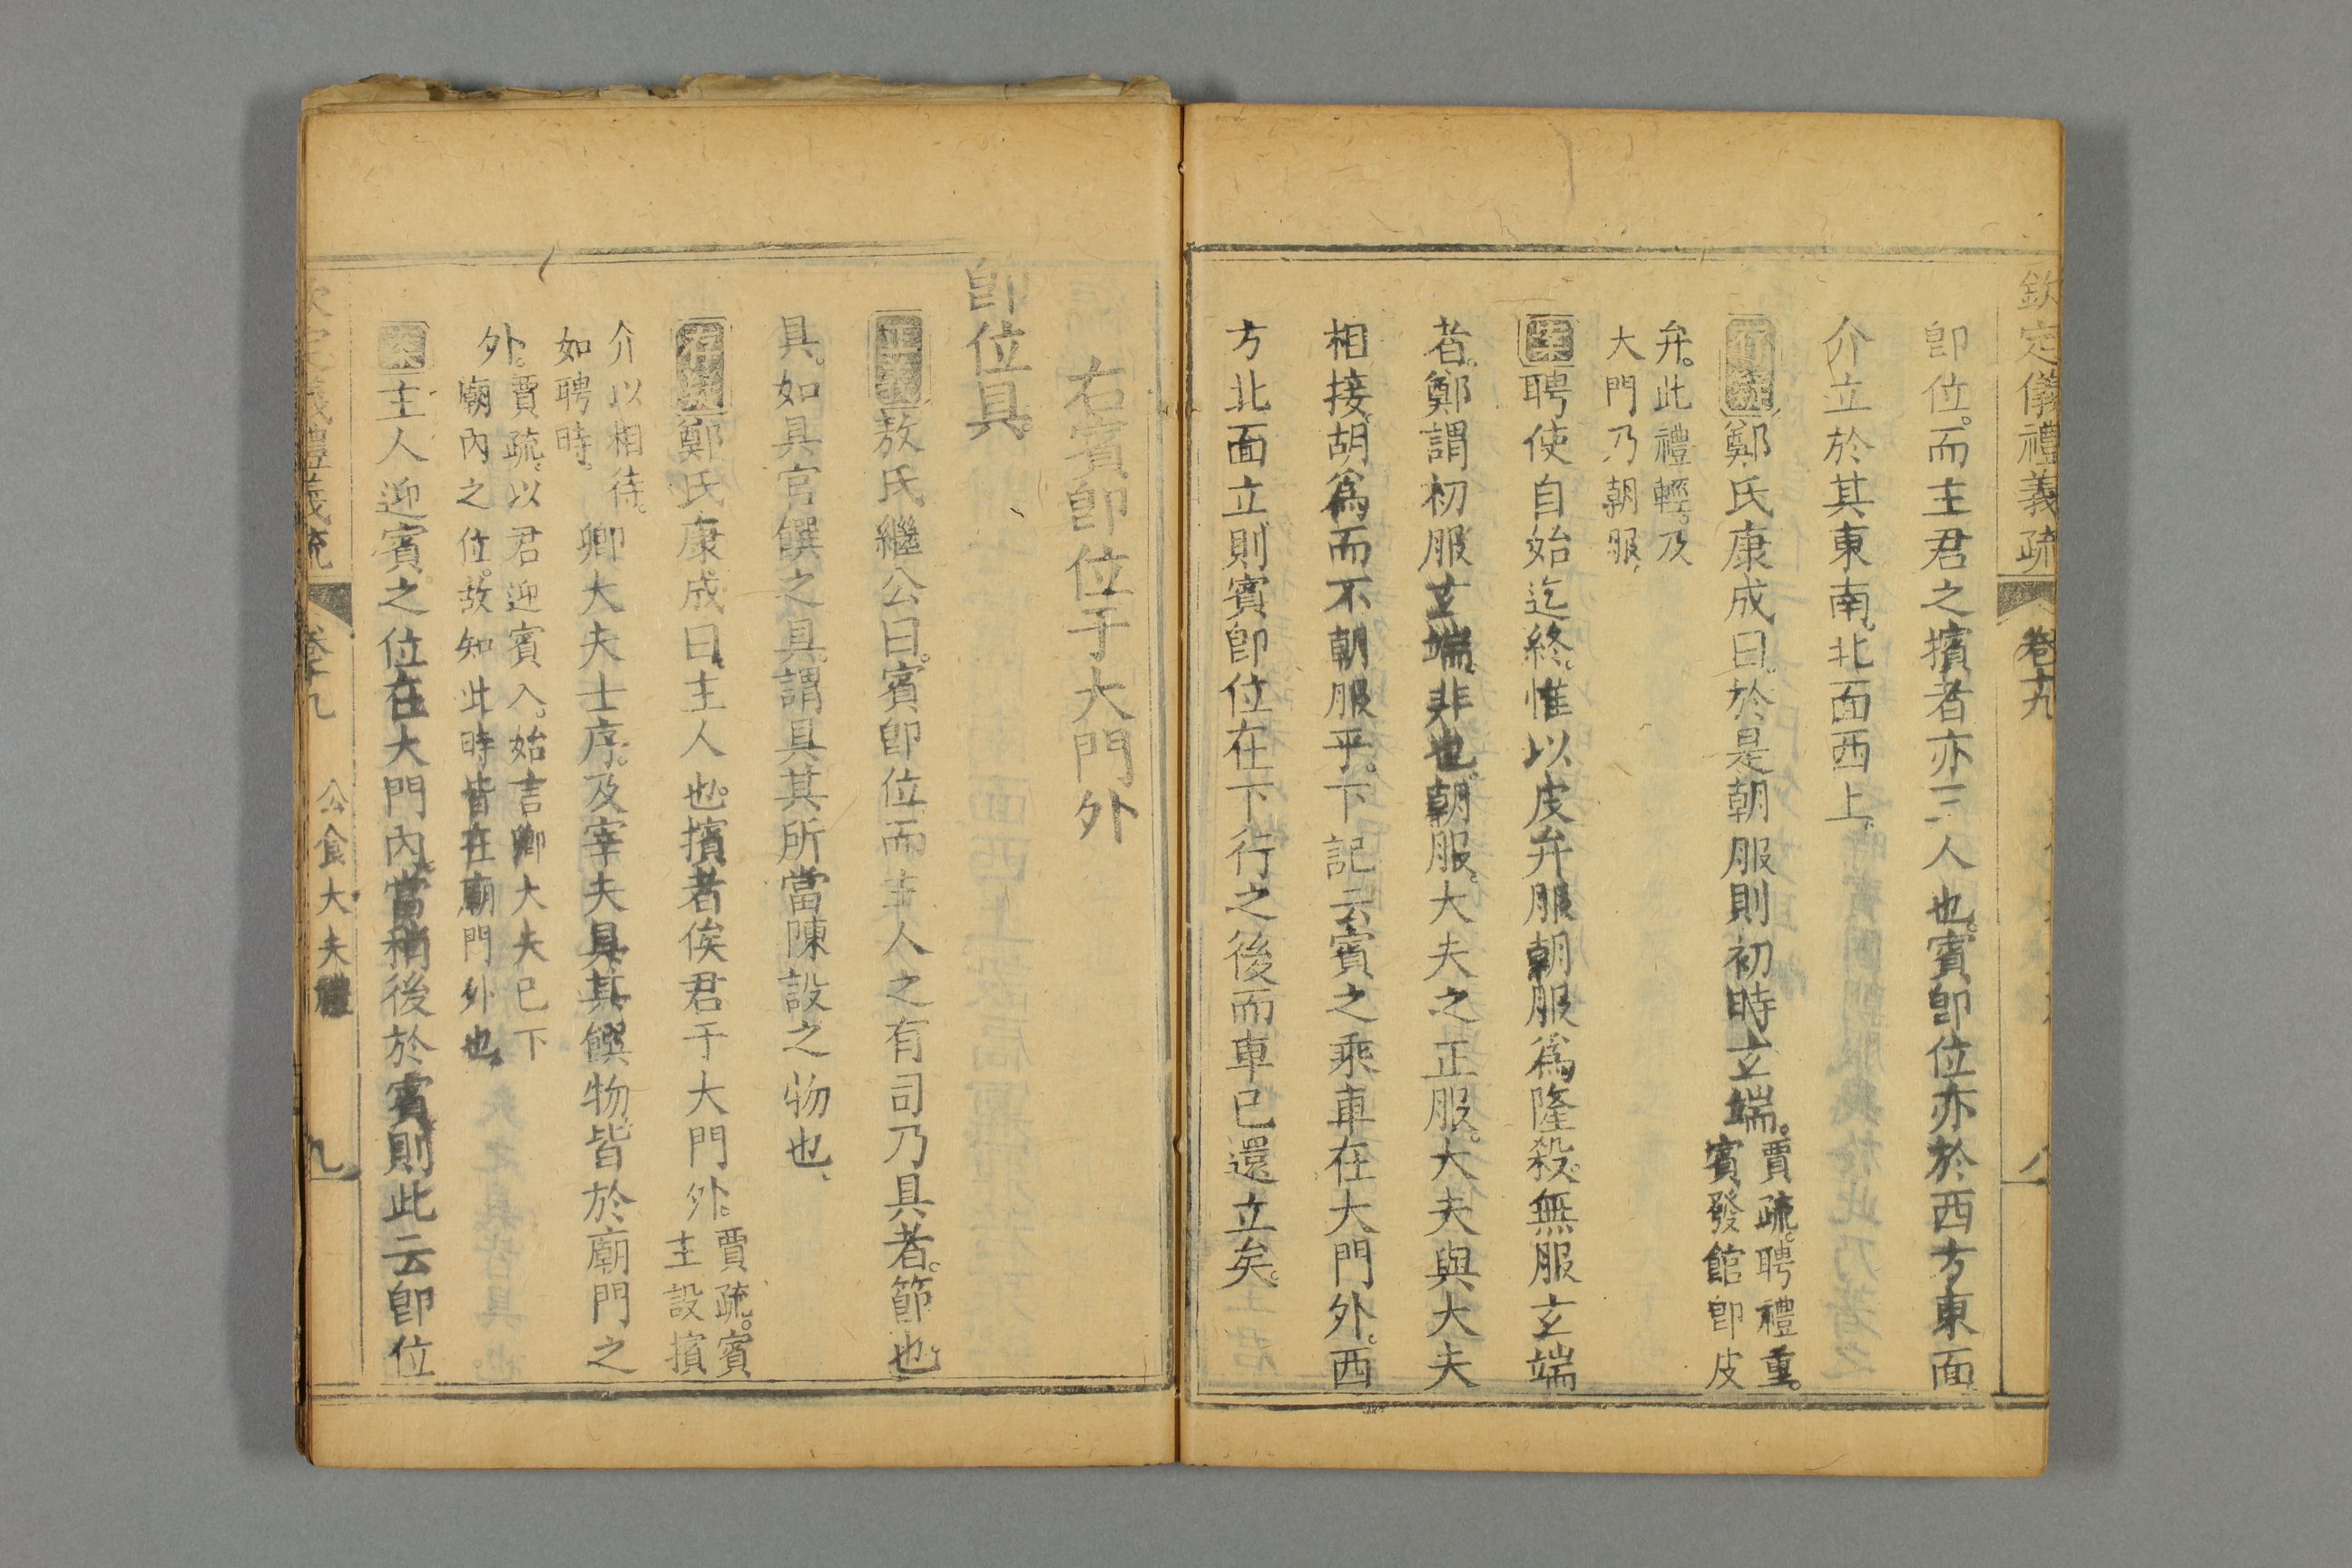 欽定儀禮義疏 卷十九 八
卽位。而主君之擯者亦三人也。賓卽位亦於西方東面
介立於其東南。北面西上。
存疑鄭氏康成曰。於是朝服則初時玄端。賈疏。聘禮重。賓發館卽皮
弁。此禮輕。及大門乃朝服。
案聘使自始迄終。惟以皮弁服朝服爲隆殺。無服玄端
者。鄭謂初服玄端。非也。朝服。大夫之正服。大夫與大夫
相接。胡爲而不朝服乎。下記云賓之乘車在大門外。西
方北面立則賓卽位在下行之後而車已還立矣。
右賓卽位于大門外
卽位具。
正義敖氏繼公曰。賓卽位而主人之有司乃具者。節也
具。如具官饌之具。謂具其所當陳設之物也。
存疑鄭氏康成曰。主人也。擯者俟君于大門外。賈疏。賓主設擯
介以相待。如聘時。卿大夫士序。及宰夫具其饌物。皆於廟門之
外。賈疏。以君迎賓入。始言卿大夫已下廟內之位。故知此時皆在廟門外也。
案主人迎賓之位在大門內。當稍後於賓。則此云卽位
欽定儀禮義疏 卷十九 公食大夫禮 九